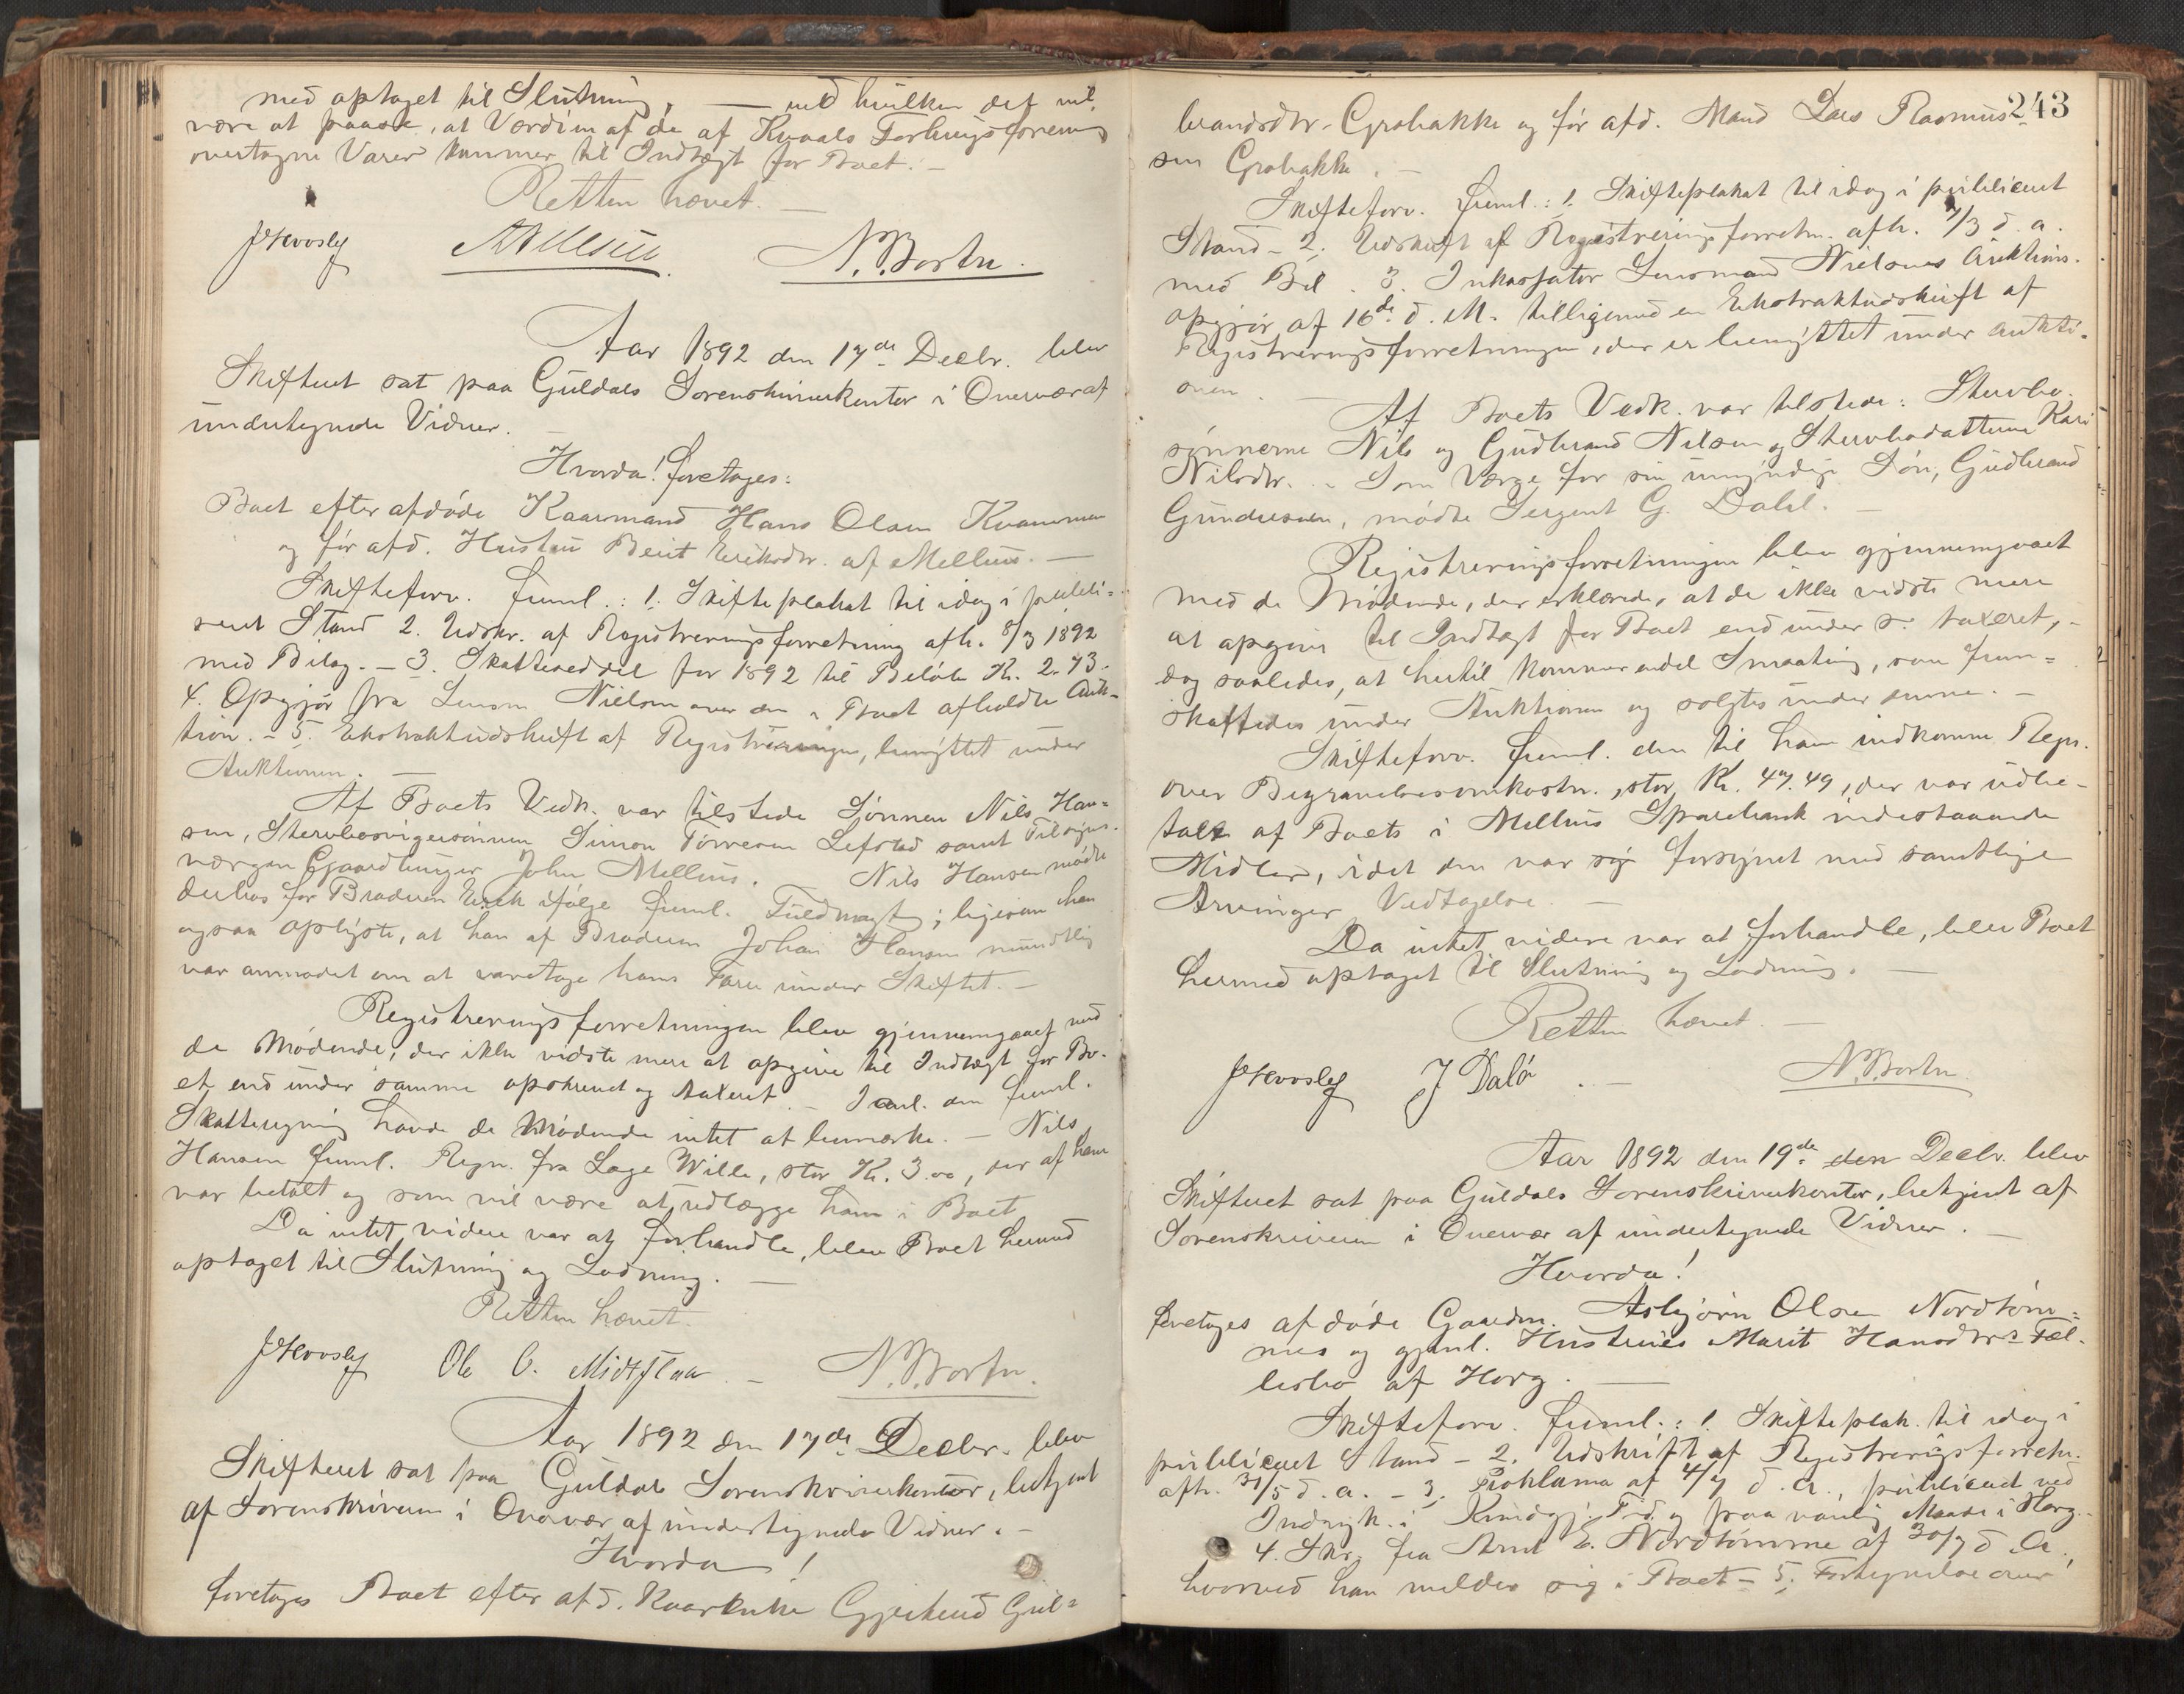 med optaget til Slutning, — ved hvilken det vil
være at paase, at Værdien af de af Kvaals Forbrugsforening
overtagne Varer kommer til Indtægt for Boet. —
Retten hævet. —
N. Bortn.
Aar 1892 den 17de Decbr. blev
Skifteret sat paa Guldals Sorenskriverkontor i Overvær af
undertegnede Vidner. —
Hvorda! foretages:
Boet efter afdøde Kaarmand Hans Olsen Kvammen
og før afd. Hustru Berit Eriksdtr. af Melhus. —
Skifteforv. freml.: 1. Skifteplakat til idag i publi=
ceret Stand 2. Udskr. af Registreringsforretning afh. 8/3 1892
med Bilag. — 3. Skatteseddel for 1892 til Beløb Kr. 2.73.
4. Opgjør fra Lensm. Nielsen over den i Boet afholdte Auk-
tion. — 5. Ekstraktudskrift af Registreringen, benyttet under
Auktionen. —
Af Boets Vedk. var tilstede Sønnen Nils Han=
sen, Stervbosvigersønnen Simon Tørresen Lefstad samt Tilsyns-
værgen Gaardbruger John Melhus. Nils Hansen mødte
derhos for Broderen Erik ifølge freml. Fuldmagt; ligesom han
ogsaa oplyste, at han af Broderen Johan Hansen mundtlig
var anmodet om at varetage hans Tarv under Skiftet. —
Registreringsforretningen blev gjennemgaaet med
de Mødende, der ikke vidste mere at opgive til Indtægt for Bo-
et end under samme opskrevet og taxeret. — I anl. den freml.
Skatteregning havde de Mødende intet at bemærke. — Nils
Hansen freml. Regn. fra Læge Wille, stor Kr. 3.00, der af ham
var betalt og som vil være at udlægge ham i Boet
Da intet videre var at forhandle, blev Boet hermed
optaget til Slutning og Lodning. —
Retten hævet.
Ole O. Midtflaa — N. Bortn.
Aar 1892 den 17de Decbr. blev
Skifteret sat paa Guldals Sorenskriverkontor, betjent
af Sorenskriveren i Overvær af undertegnede Vidner. —
Hvorda!
foretages Boet efter afd. Kaarenke Gjertrud Gul=
243
brandsdtr. Grobakke og før afd. Mand Lars Rasmus-
sen Grobakke. —
Skifteforv. freml.: 1. Skifteplakat til idag i publiceret
Stand — 2. Udskrift af Registreringsforretn. afh. 7/3 d. a.
med Bil. 3. Inkassator Lensmand Nielsens Auktions-
opgjør af 16de d. M. tilligemed en Ekstraktudskrift af
Registreringsforretningen, der er benyttet under Aukti-
onen. —
Af Boets Vedk. var tilstede: Stervbo-
sønnerne Nils og Gudbrand Nilsen og Stervbodatteren Kari
Nilsdtr. — Som Værge for sin umyndige Søn, Gudbrand
Gundersen, mødte Sergent G. Dahl. —
Registreringsforretningen blev gjennemgaaet
med de Mødende, der erklærede, at de ikke vidste mere
at opgive til Indtægt for Boet end under s. taxeret, —
dog saaledes, at hertil kommer endel Smaating, som frem=
skaffedes under Auktionen og solgtes under denne. —
Skifteforv. freml. den til ham indkomne Regn.
over Begravelsesomkostn., stor Kr. 47.49, der var udbe-
talt af Boets i Melhus Sparebank indestaaende
Midler, idet den var forsynet med samtlige
Arvinger Vedtagelse. —
Da intet videre var at forhandle, blev Boet
hermed optaget til Slutning og Lodning. —
Retten hævet. —
J Dalø — N. Bortn
Aar 1892 den 19de den Decbr. blev
Skifteret sat paa Guldals Sorenskriverkontor, betjent af
Sorenskriveren i Overvær af undertegnede Vidner. —
Hvorda!
foretages afdøde Gaardm. Asbjørn Olsen Nordtøm=
mes og gjenl. Hustrues Marit Hansdtrs Fæl-
lesbo af Horg. —
Skifteforv. freml.: 1. Skifteplak. til idag i
publiceret Stand — 2. Udskrift af Registreringsforretn.
afh. 31/5 d. a. — 3. Proklama af 4/7 d. A., publiceret ved
Indryk. i Kundgj. Tid. og paa vanlig Maade i Horg.
4. Skr. fra Arnt E. Nordtømme af 30/7 d. A.,
hvorved han melder sig i Boet — 5. Fortegnelse over